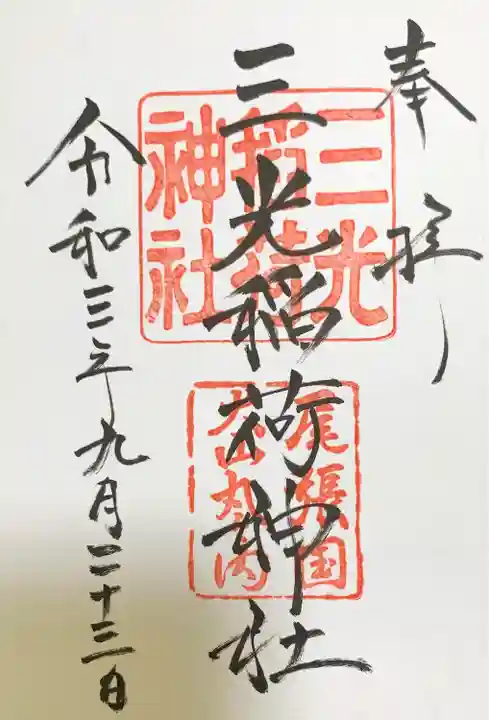 奉拝
三光稲荷神社
三光
稲荷
神社
尾張国
犬山丸内
令和三年九月二十三日